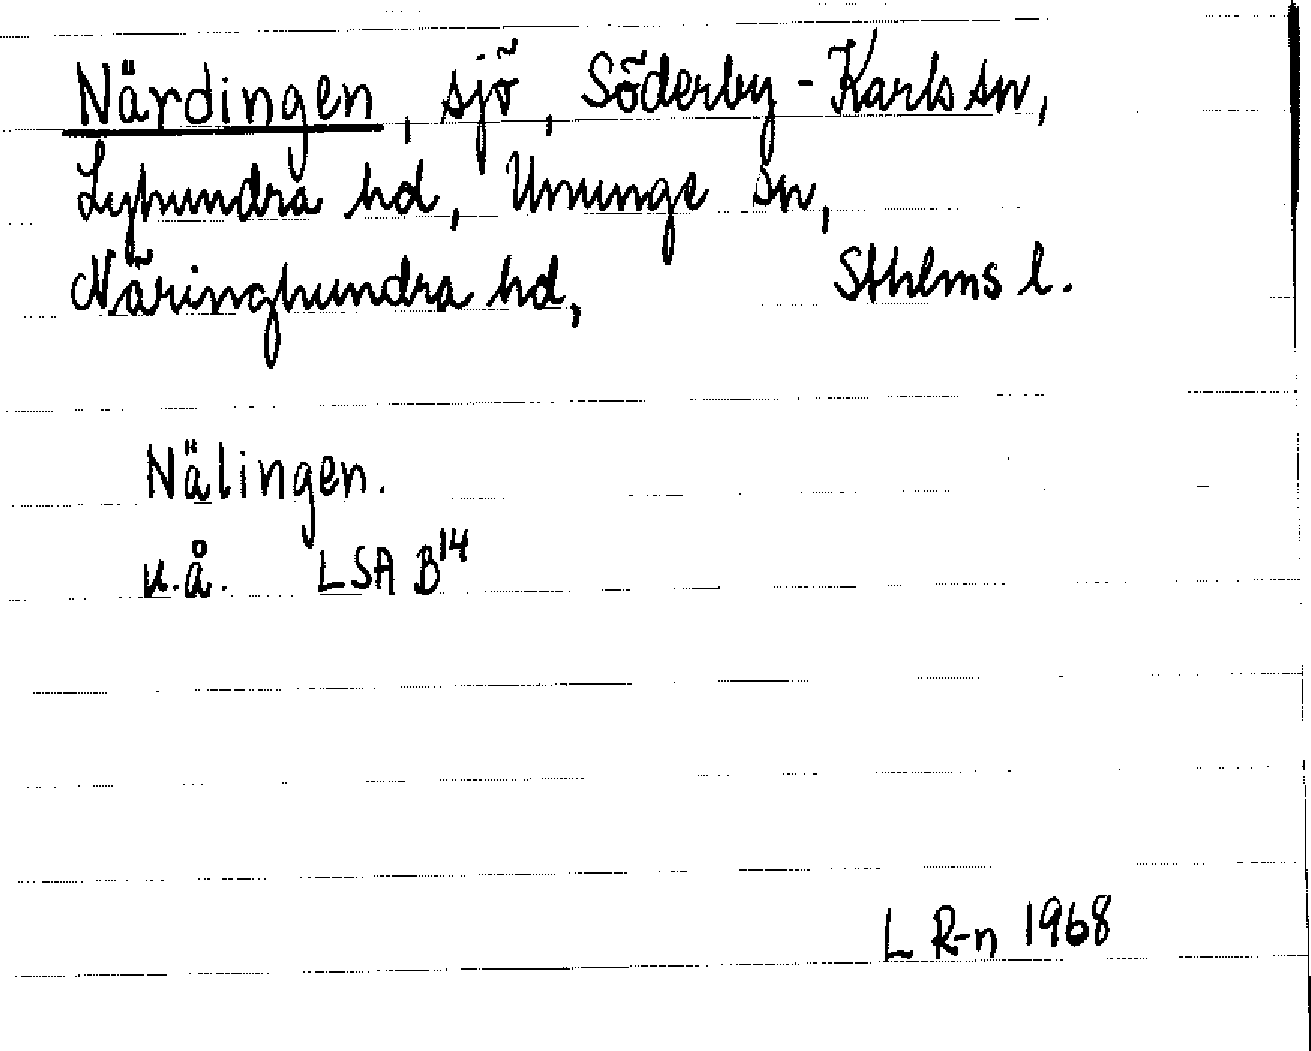 Närdingen, sjö, Söderby-Karls sn,
Lyhundra hd, Ununge sn,
Närdinghundra hd, Sthlms l.
Nälingen.
u.å. LSA B14
L R-n 1968